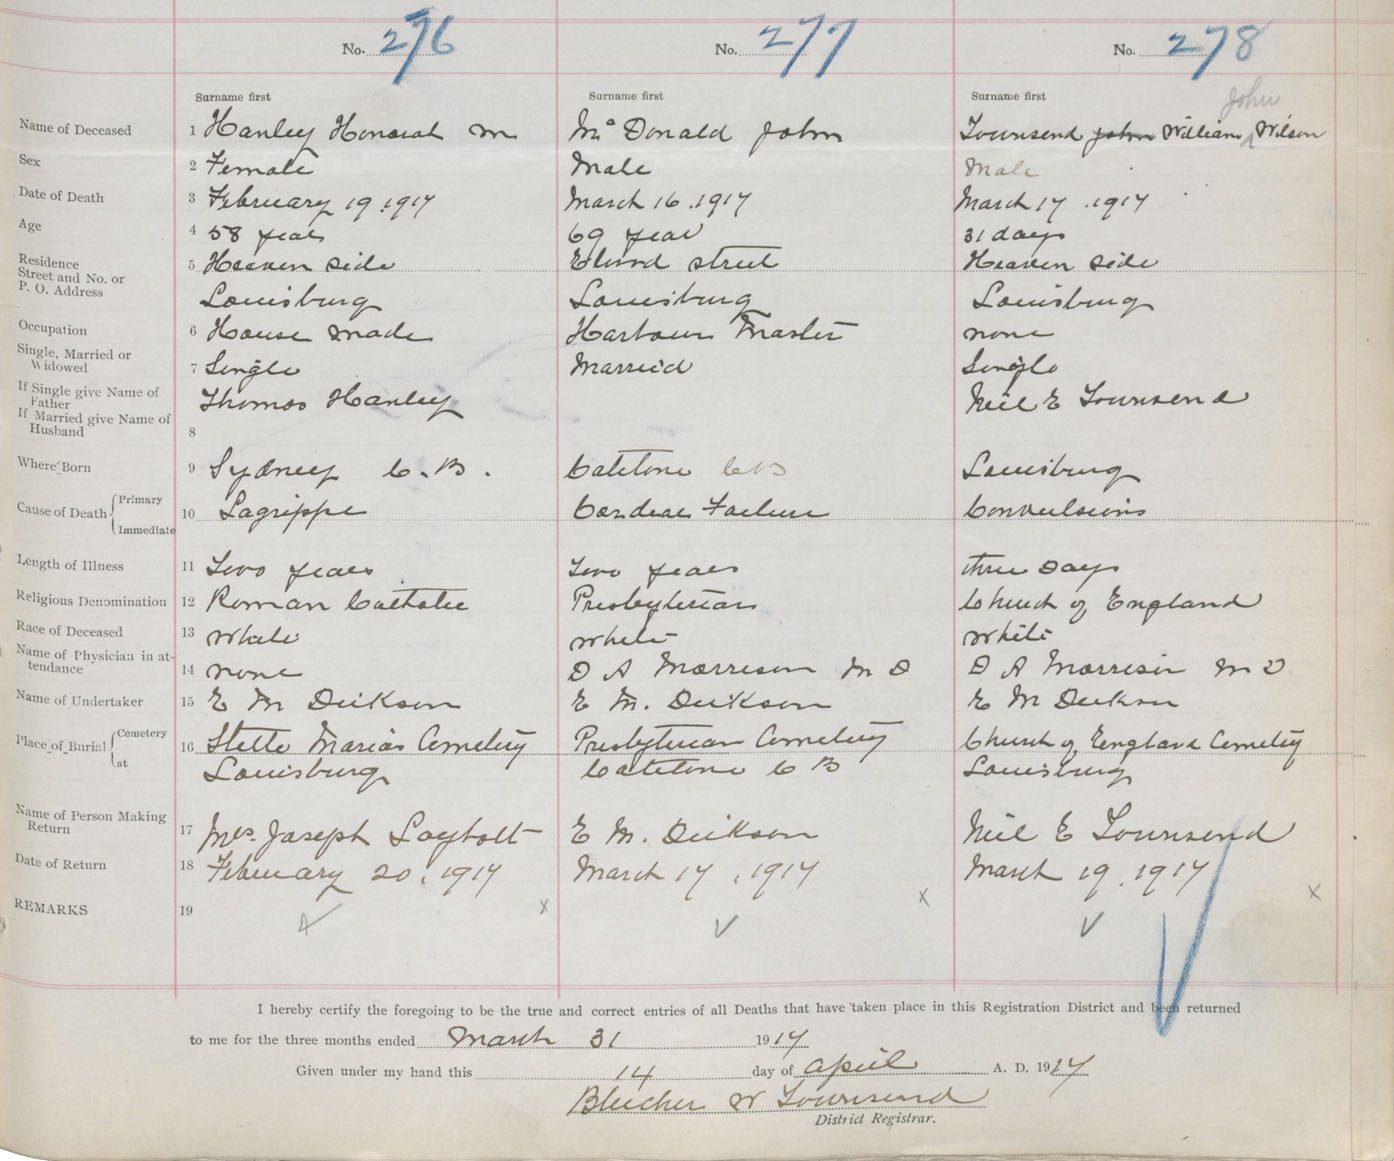 No. 276 No. 277 No. 278
Surname first Surname first Surname first
John
Name of Deceased 1 Hanley Honorah M Mc Donald John Townsend John William Wilson
Sex 2 Female Male Male
Date of Death 3 February 19, 1917 March 16. 1917 March 17. 1917
Age 4 58 years 69 year 31 days
Residence
Street and No. or
P. O. Address
5 Heaven side street Heaven side
Louisburg Louisburg Louisburg
Occupation 6 House made Harbour Master none
Single, Married or
Widowed
7 Single Married Single
If Single give Name of
Father
Thomas Hanley Neil E Townsend
If Married give Name of
Husband
8
Where Born 9 Sydney C. B. Catelone CB Louisburg
Cause of Death Primary
Immediate
10 Lagrippe Cardeac Failure Convulsions
Length of Illness 11 Two years Two years three Days
Religious Denomination 12 Roman Catholic Presbyterian Church of England
Race of Deceased 13 White White White
Name of Physician in at-
tendance
14 none D A Morrison M D D A Morrison M D
Name of Undertaker 15 E M Dickson E M. Dickson E M Dickson
Place of Burial Cemetery
at
16 Stella Marias Cemetery Presbyterian Cemetery Church of England Cemetery
Louisburg Catelone C B Louisburg
Name of Person Making
Return
17 Mrs. Joseph E M. Dickson Neil E Townsend
Date of Return 18 February 20, 1917 March 17, 1917 March 19, 1917
REMARKS 19
I hereby certify the foregoing to be the true and correct entries of all Deaths that have taken place in this Registration District and been returned
to me for the three months ended March 31 1917
Given under my hand this 14 day of April A. D. 1917
W Townsend
District Registrar.